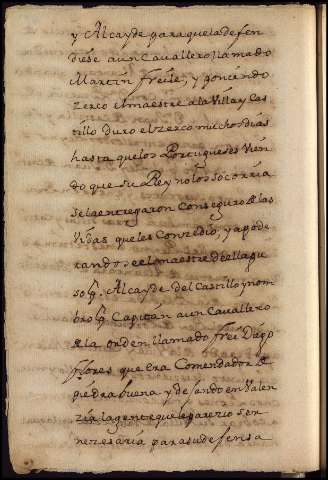 y Alcayde para que la defen
diese a un Cavallero llamado
Martin freile, y poniendo
zerco el maestre a la Villa y Cas
tillo duro el zerco muchos dias
hasta que los Portugueses vien
do que su Rey no los socorria
se la entregaron con seguro de las
vidas que les Conzedio, y apode
randose el maestre de ella pu
so por Alcayde del Castillo y nom
bro por Capitan a un Cavallero
de la orden llamado frei Diego
flores que era Comendador de
piedra buena y dejando en Valen
zia la gente que le parezio ser
nezesaria para su defensa